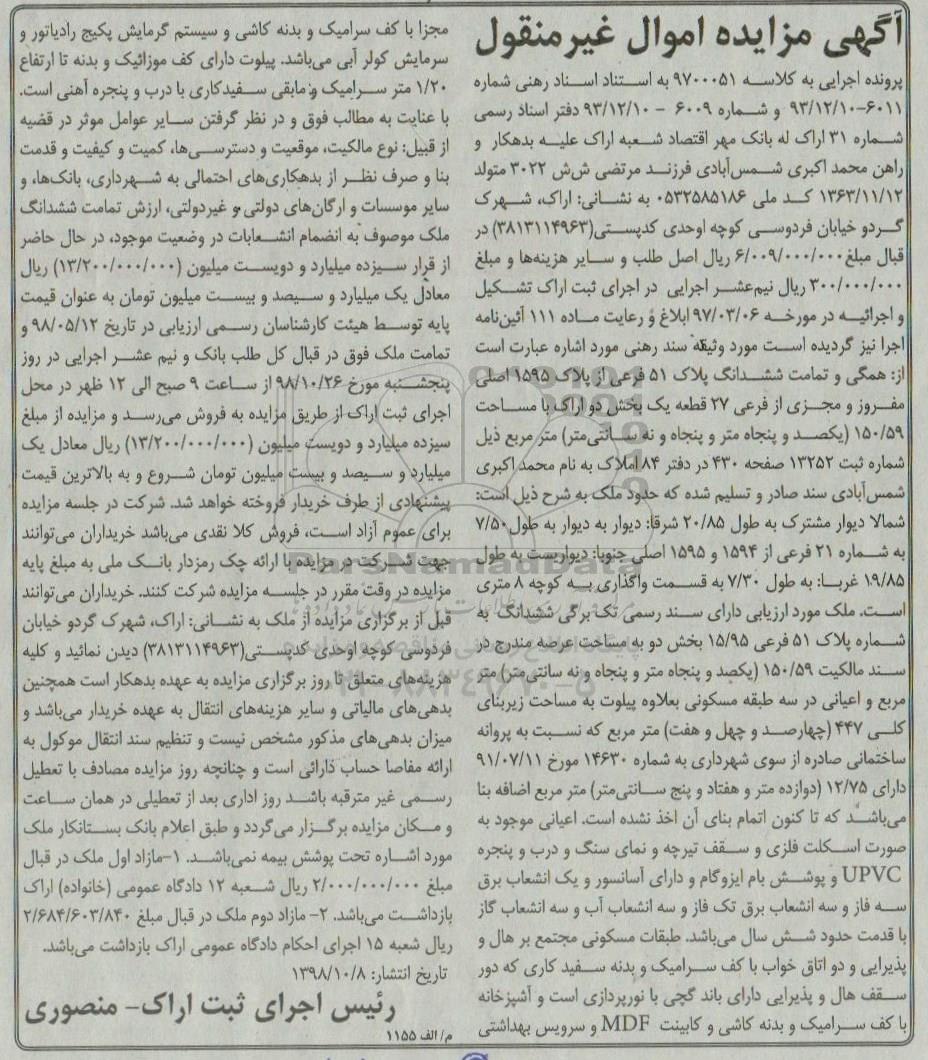 آگهی مزایده اموال غیرمنقول
پرونده اجرایی به کلاسه ۹۷۰۰۰۵۱ به استناد اسناد رهنی شماره
۶۰۱۱-۹۳/۱۲/۱۰ و شماره ۶۰۰۹ - ۹۳/۱۲/۱۰ دفتر اسناد رسمی
شماره ۳۱ اراک له بانک مهر اقتصاد شعبه اراک علیه بدهکار و
راهن محمد اکبری شمس‌آبادی فرزند مرتضی ش‌ش ۳۰۲۲ متولد
۱۳۶۳/۱۱/۱۲ کد ملی ۰۵۳۲۵۸۵۱۸۶ به نشانی: اراک، شهرک
گردو خیابان فردوسی کوچه اوحدی کدپستی(۳۸۱۳۱۱۴۹۶۳) در
قبال مبلغ ۶/۰۰۹/۰۰۰/۰۰۰ ریال اصل طلب و سایر هزینه‌ها و مبلغ
۳۰۰/۰۰۰/۰۰۰ ریال نیم‌عشر اجرایی در اجرای ثبت اراک تشکیل
و اجرائیه در مورخه ۹۷/۰۳/۰۶ ابلاغ و رعایت ماده ۱۱۱ آئین‌نامه
اجرا نیز گردیده است مورد وثیقه سند رهنی مورد اشاره عبارت است
از: همگی و تمامت ششدانگ پلاک ۵۱ فرعی از پلاک ۱۵۹۵ اصلی
مفروز و مجزی از فرعی ۲۷ قطعه یک بخش دو اراک با مساحت
۱۵۰/۵۹ (یکصد و پنجاه متر و پنجاه و نه سانتی‌متر) متر مربع ذیل
شماره ثبت ۱۳۲۵۲ صفحه ۴۳۰ در دفتر ۸۴ املاک به نام محمد اکبری
شمس‌آبادی سند صادر و تسلیم شده که حدود ملک به شرح ذیل است:
شمالا دیوار مشترک به طول ۲۰/۸۵ شرقا: دیوار به دیوار به طول ۷/۵۰
به شماره ۲۱ فرعی از ۱۵۹۴ و ۱۵۹۵ اصلی جنوبا: دیواریست به طول
۱۹/۸۵ غربا: به طول ۷/۳۰ به قسمت واگذاری به کوچه ۸ متری
است. ملک مورد ارزیابی دارای سند رسمی تک برگی ششدانگ به
شماره پلاک ۵۱ فرعی ۱۵/۹۵ بخش دو به مساحت عرصه مندرج در
سند مالکیت ۱۵۰/۵۹ (یکصد و پنجاه متر و پنجاه و نه سانتی‌متر) متر
مربع و اعیانی در سه طبقه مسکونی بعلاوه پیلوت به مساحت زیربنای
کلی ۴۴۷ (چهارصد و چهل و هفت) متر مربع که نسبت به پروانه
ساختمانی صادره از سوی شهرداری به شماره ۱۴۶۳۰ مورخ ۹۱/۰۷/۱۱
دارای ۱۲/۷۵ (دوازده متر و هفتاد و پنج سانتی‌متر) متر مربع اضافه بنا
می‌باشد که تا کنون اتمام بنای آن اخذ نشده است. اعیانی موجود به
صورت اسکلت فلزی و سقف تیرچه و نمای سنگ و درب و پنجره
UPVC و پوشش بام ایزوگام و دارای آسانسور و یک انشعاب برق
سه فاز و سه انشعاب برق تک فاز و سه انشعاب آب و سه انشعاب گاز
با قدمت حدود شش سال می‌باشد. طبقات مسکونی مجتمع بر هال و
پذیرایی و دو اتاق خواب با کف سرامیک و بدنه سفید کاری که دور
سقف هال و پذیرایی دارای باند گچی با نورپردازی است و آشپزخانه
با کف سرامیک و بدنه کاشی و کابینت MDF و سرویس بهداشتی
مجزا با کف سرامیک و بدنه کاشی و سیستم گرمایش پکیج رادیاتور و
سرمایش کولر آبی می‌باشد. پیلوت دارای کف موزائیک و بدنه تا ارتفاع
۱/۲۰ متر سرامیک و مابقی سفیدکاری با درب و پنجره آهنی است.
با عنایت به مطالب فوق و در نظر گرفتن سایر عوامل موثر در قضیه
از قبیل: نوع مالکیت، موقعیت و دسترسی‌ها، کمیت و کیفیت و قدمت
بنا و صرف نظر از بدهکاری‌های احتمالی به شهرداری، بانک‌ها، و
سایر موسسات و ارگان‌های دولتی و غیردولتی، ارزش تمامت ششدانگ
ملک موصوف به انضمام انشعابات در وضعیت موجود، در حال حاضر
از قرار سیزده میلیارد و دویست میلیون (۱۳/۲۰۰/۰۰۰/۰۰۰) ریال
معادل یک میلیارد و سیصد و بیست میلیون تومان به عنوان قیمت
پایه توسط هیئت کارشناسان رسمی ارزیابی در تاریخ ۹۸/۰۵/۱۲ و
تمامت ملک فوق در قبال کل طلب بانک و نیم عشر اجرایی در روز
پنجشنبه مورخ ۹۸/۱۰/۲۶ از ساعت ۹ صبح الی ۱۲ ظهر در محل
اجرای ثبت اراک از طریق مزایده به فروش می‌رسد و مزایده از مبلغ
سیزده میلیارد و دویست میلیون (۱۳/۲۰۰/۰۰۰/۰۰۰) ریال معادل یک
میلیارد و سیصد و بیست میلیون تومان شروع و به بالاترین قیمت
پیشنهادی از طرف خریدار فروخته خواهد شد. شرکت در جلسه مزایده
برای عموم آزاد است، فروش کلا نقدی می‌باشد خریداران می‌توانند
جهت شرکت در مزایده با ارائه چک رمزدار بانک ملی به مبلغ پایه
مزایده در وقت مقرر در جلسه مزایده شرکت کنند. خریداران می‌توانند
قبل از برگزاری مزایده از ملک به نشانی: اراک، شهرک گردو خیابان
فردوسی کوچه اوحدی کدپستی(۳۸۱۳۱۱۴۹۶۳) دیدن نمائید و کلیه
هزینه‌های متعلق تا روز برگزاری مزایده به عهده بدهکار است همچنین
بدهی‌های مالیاتی و سایر هزینه‌های انتقال به عهده خریدار می‌باشد و
میزان بدهی‌های مذکور مشخص نیست و تنظیم سند انتقال موکول به
ارائه مفاصا حساب دارائی است و چنانچه روز مزایده مصادف با تعطیل
رسمی غیر مترقبه باشد روز اداری بعد از تعطیلی در همان ساعت
و مکان مزایده برگزار می‌گردد و طبق اعلام بانک بستانکار ملک
مورد اشاره تحت پوشش بیمه نمی‌باشد. ۱-مازاد اول ملک در قبال
مبلغ ۲/۰۰۰/۰۰۰/۰۰۰ ریال شعبه ۱۲ دادگاه عمومی (خانواده) اراک
بازداشت می‌باشد. ۲- مازاد دوم ملک در قبال مبلغ ۲/۶۸۴/۶۰۳/۸۴۰
ریال شعبه ۱۵ اجرای احکام دادگاه عمومی اراک بازداشت می‌باشد.
تاریخ انتشار: ۱۳۹۸/۱۰/۸
رئیس اجرای ثبت اراک- منصوری
م/ الف ۱۱۵۵
ParsNamadData